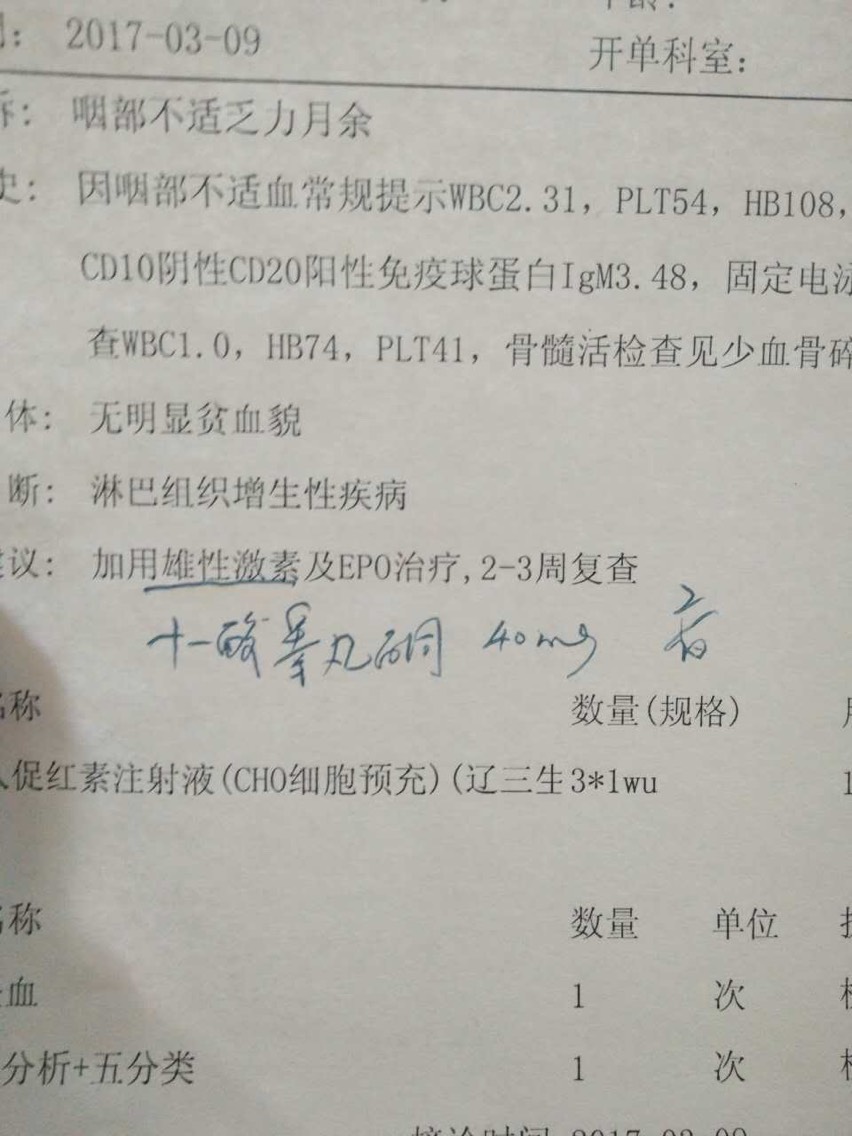 2017-03-09
开单科室：
诉： 咽部不适乏力月余
史： 因咽部不适血常规提示WBC2.31，PLT54，HB108，
CD10阴性CD20阳性免疫球蛋白IgM3.48，固定电泳
查WBC1.0，HB74，PLT41，骨髓活检查见少血骨碎
体： 无明显贫血貌
断： 淋巴组织增生性疾病
建议： 加用雄性激素及EPO治疗,2-3周复查
十一酸睾丸酮 40mg
名称 数量(规格)
人促红素注射液(CHO细胞预充)(辽三生 3*1wu 1
名称 数量 单位
血 1 次
分析+五分类 1 次
接诊时间 2017-03-09